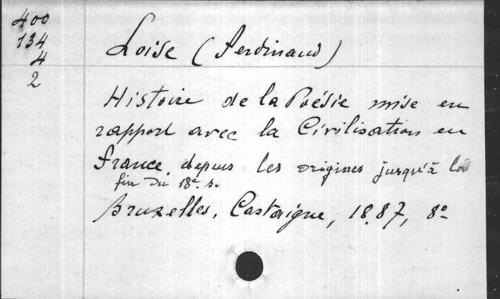 400
134
4
2
Loise (Ferdinand)
Histoire de la Poésie mise en
rapport avec la Civilisation en
France, depuis les origines jusqu'à la
fin du 18e s.
Bruxelles, Castaigne, 1887, 8o